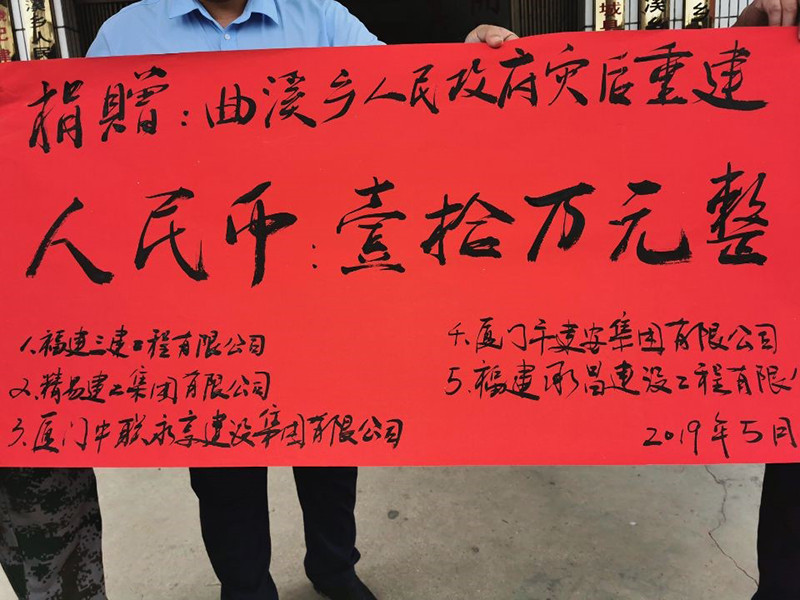 捐贈:曲溪乡人民政府灾后重建
人民币:壹拾万元整
1.福建三建工程有限公司
2.精易建工集团有限公司
3.厦门中联永亨建设集团有限公司
4.厦门市建安集团有限公司
5.福建承昌建设工程有限
2019年5月